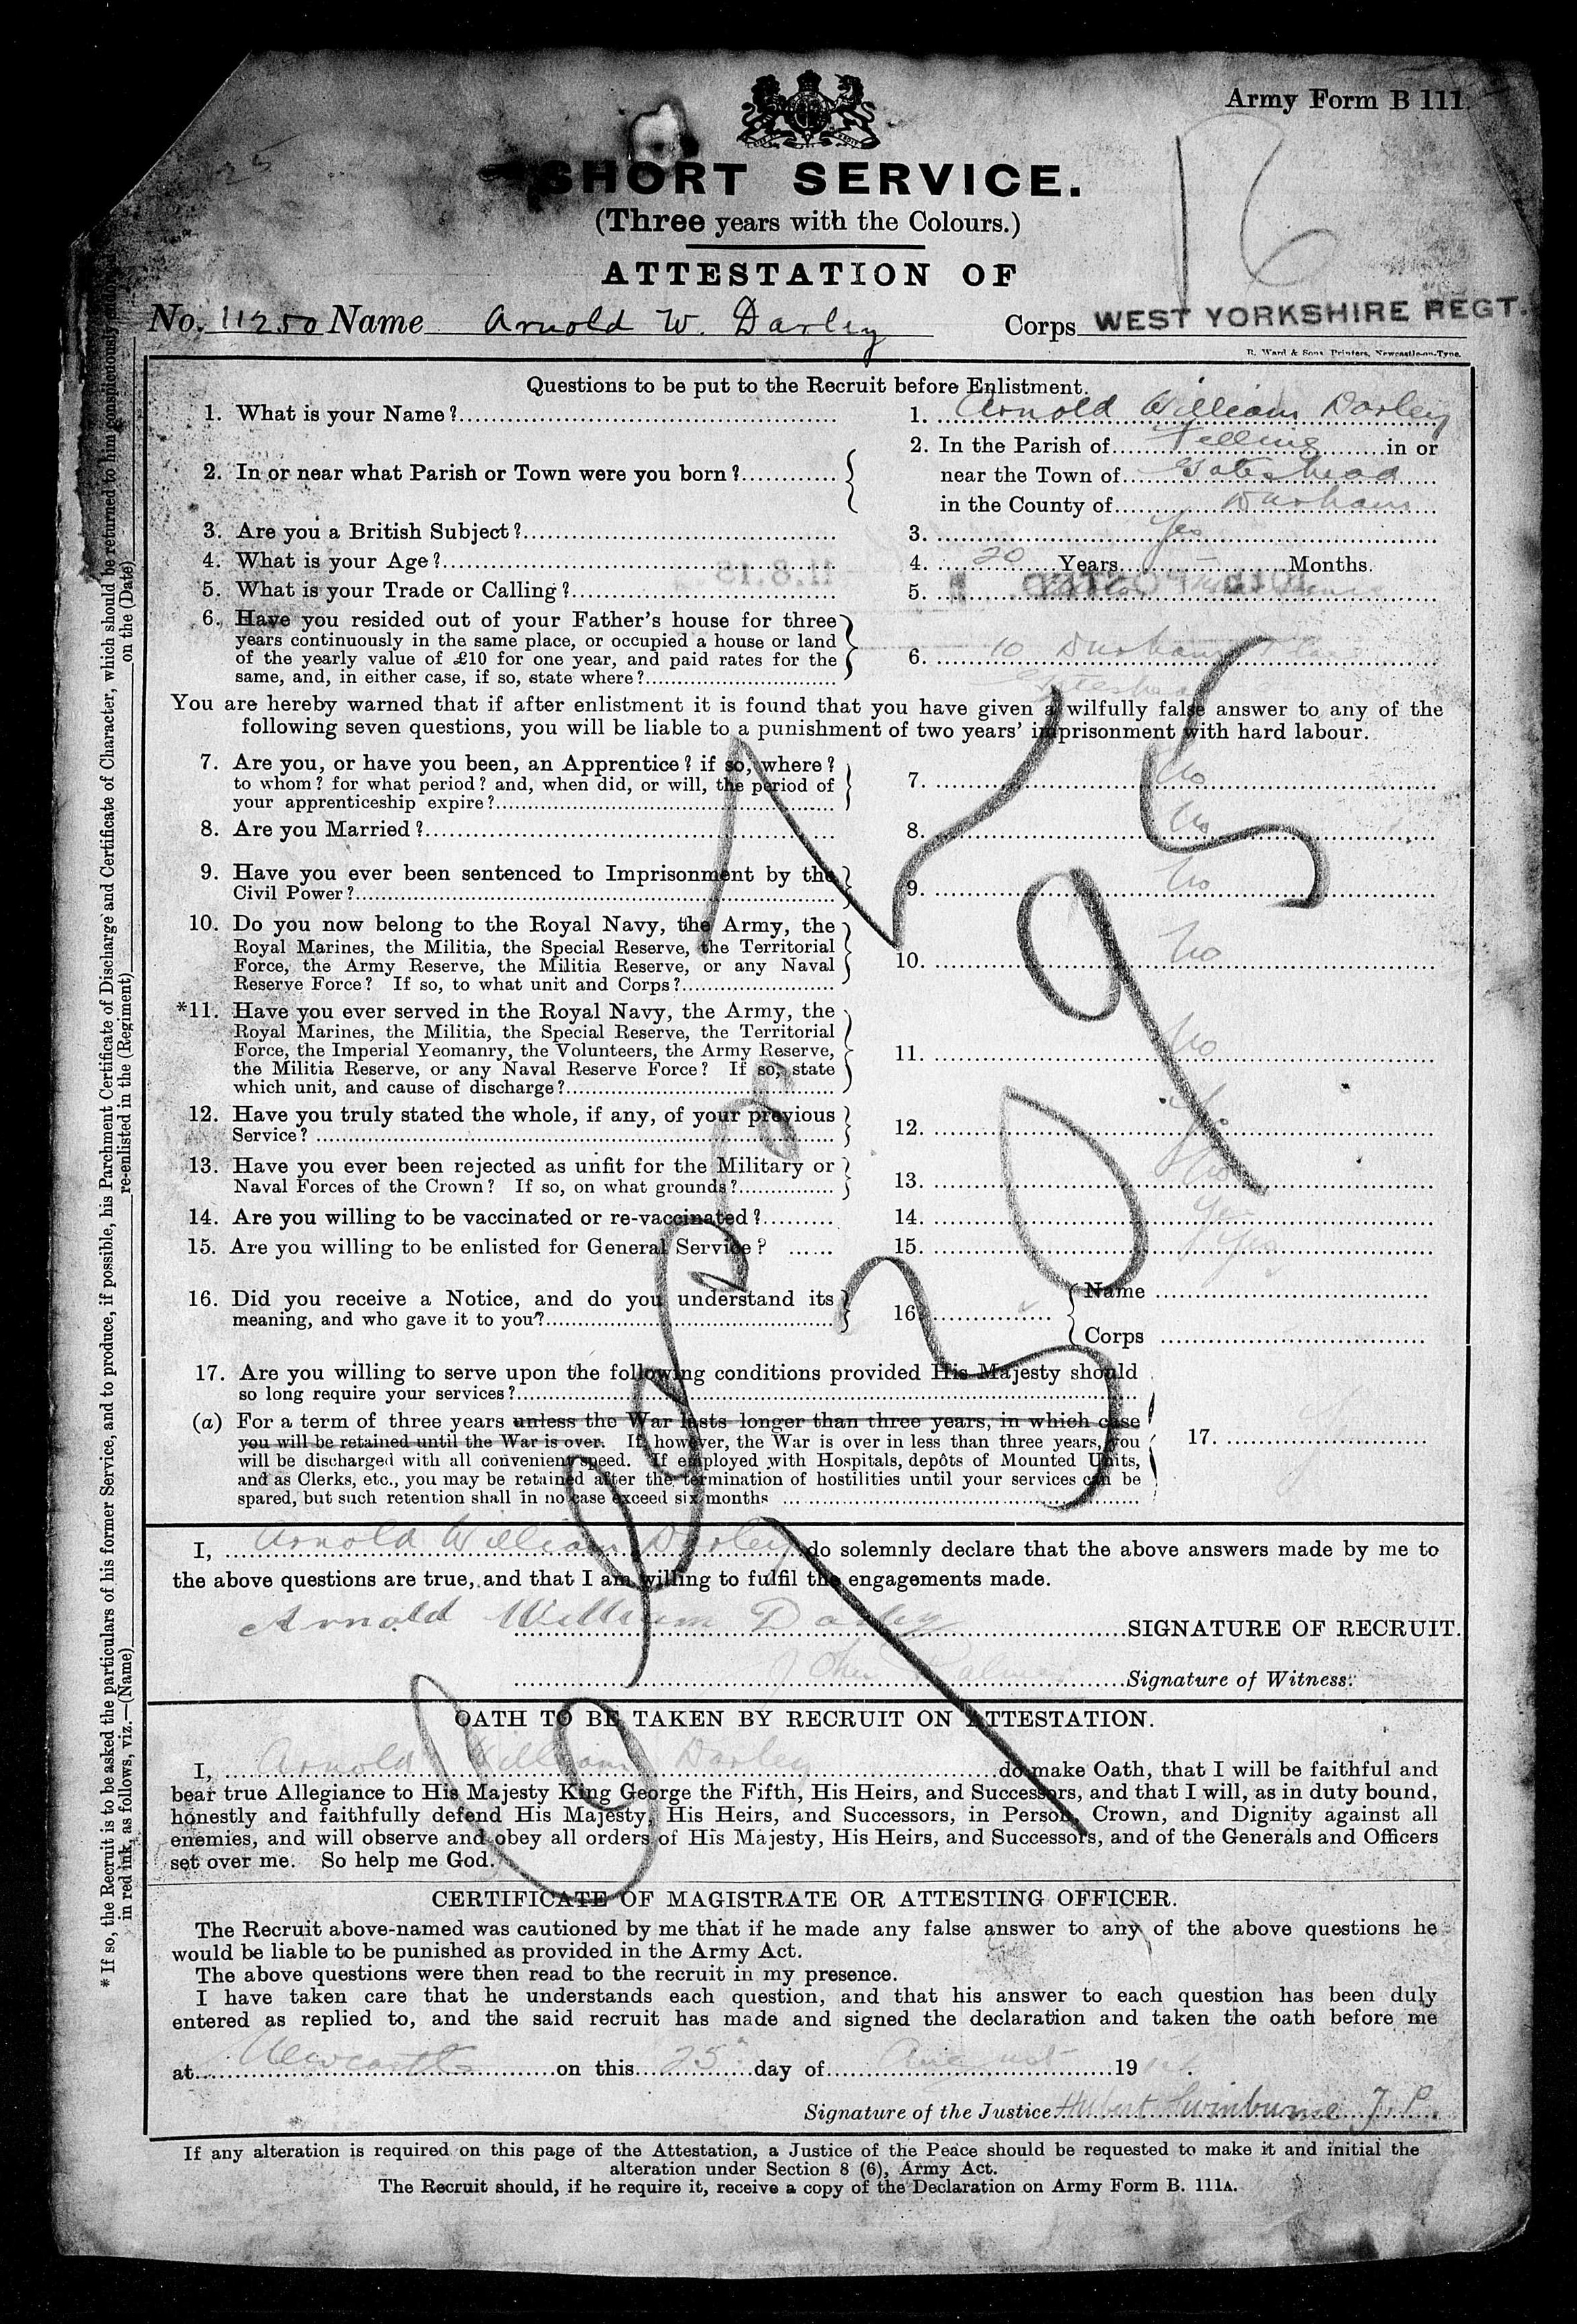 Army Form B 111.
25
16
SHORT SERVICE.
(Three years with the Colours.)
ATTESTATION OF
No. 11250 Name Arnold W. Darley Corps WEST YORKSHIRE REGT.
R. Ward & Sons, Printers, Newcastle-on-Tyne.
Questions to be put to the Recruit before Enlistment.
1. What is your Name? 1. Arnold William Darley
2. In or near what Parish or Town were you born? 2. In the Parish of Felling in or
near the Town of Gateshead
in the County of Durham
3. Are you a British Subject? 3. Yes
4. What is your Age? 4. 20 Years – Months.
5. What is your Trade or Calling? 5.
6. Have you resided out of your Father's house for three
years continuously in the same place, or occupied a house or land
of the yearly value of £10 for one year, and paid rates for the
same, and, in either case, if so, state where? 6. 10 Durham Place
Gateshead
You are hereby warned that if after enlistment it is found that you have given a wilfully false answer to any of the
following seven questions, you will be liable to a punishment of two years' imprisonment with hard labour.
7. Are you, or have you been, an Apprentice? if so, where?
to whom? for what period? and, when did, or will, the period of
your apprenticeship expire? 7. No
8. Are you Married? 8. No
9. Have you ever been sentenced to Imprisonment by the
Civil Power? 9. No
10. Do you now belong to the Royal Navy, the Army, the
Royal Marines, the Militia, the Special Reserve, the Territorial
Force, the Army Reserve, the Militia Reserve, or any Naval
Reserve Force? If so, to what unit and Corps? 10. No
*11. Have you ever served in the Royal Navy, the Army, the
Royal Marines, the Militia, the Special Reserve, the Territorial
Force, the Imperial Yeomanry, the Volunteers, the Army Reserve,
the Militia Reserve, or any Naval Reserve Force? If so, state
which unit, and cause of discharge? 11. No
12. Have you truly stated the whole, if any, of your previous
Service? 12. Yes
13. Have you ever been rejected as unfit for the Military or
Naval Forces of the Crown? If so, on what grounds? 13. No
14. Are you willing to be vaccinated or re-vaccinated? 14. Yes
15. Are you willing to be enlisted for General Service? 15. Yes
16. Did you receive a Notice, and do you understand its
meaning, and who gave it to you? 16. Name
Corps
17. Are you willing to serve upon the following conditions provided His Majesty should
so long require your services?
(a) For a term of three years unless the War lasts longer than three years, in which case
you will be retained until the War is over. If, however, the War is over in less than three years, you
will be discharged with all convenient speed. If employed with Hospitals, depôts of Mounted Units,
and as Clerks, etc., you may be retained after the termination of hostilities until your services can be
spared, but such retention shall in no case exceed six months 17.
I, Arnold William Darley do solemnly declare that the above answers made by me to
the above questions are true, and that I am willing to fulfil the engagements made.
Arnold William Darley SIGNATURE OF RECRUIT.
John Palmer Signature of Witness.
OATH TO BE TAKEN BY RECRUIT ON ATTESTATION.
I, Arnold William Darley do make Oath, that I will be faithful and
bear true Allegiance to His Majesty King George the Fifth, His Heirs, and Successors, and that I will, as in duty bound,
honestly and faithfully defend His Majesty, His Heirs, and Successors, in Person, Crown, and Dignity against all
enemies, and will observe and obey all orders of His Majesty, His Heirs, and Successors, and of the Generals and Officers
set over me. So help me God.
CERTIFICATE OF MAGISTRATE OR ATTESTING OFFICER.
The Recruit above-named was cautioned by me that if he made any false answer to any of the above questions he
would be liable to be punished as provided in the Army Act.
The above questions were then read to the recruit in my presence.
I have taken care that he understands each question, and that his answer to each question has been duly
entered as replied to, and the said recruit has made and signed the declaration and taken the oath before me
at Newcastle on this 25 day of August 1914.
Signature of the Justice Hubert Swinburne J.P.
If any alteration is required on this page of the Attestation, a Justice of the Peace should be requested to make it and initial the
alteration under Section 8 (6), Army Act.
The Recruit should, if he require it, receive a copy of the Declaration on Army Form B. 111A.
* If so, the Recruit is to be asked the particulars of his former Service, and to produce, if possible, his Parchment Certificate of Discharge and Certificate of Character, which should be returned to him conspicuously endorsed
in red ink, as follows, viz.—(Name) re-enlisted in the (Regiment) on the (Date)